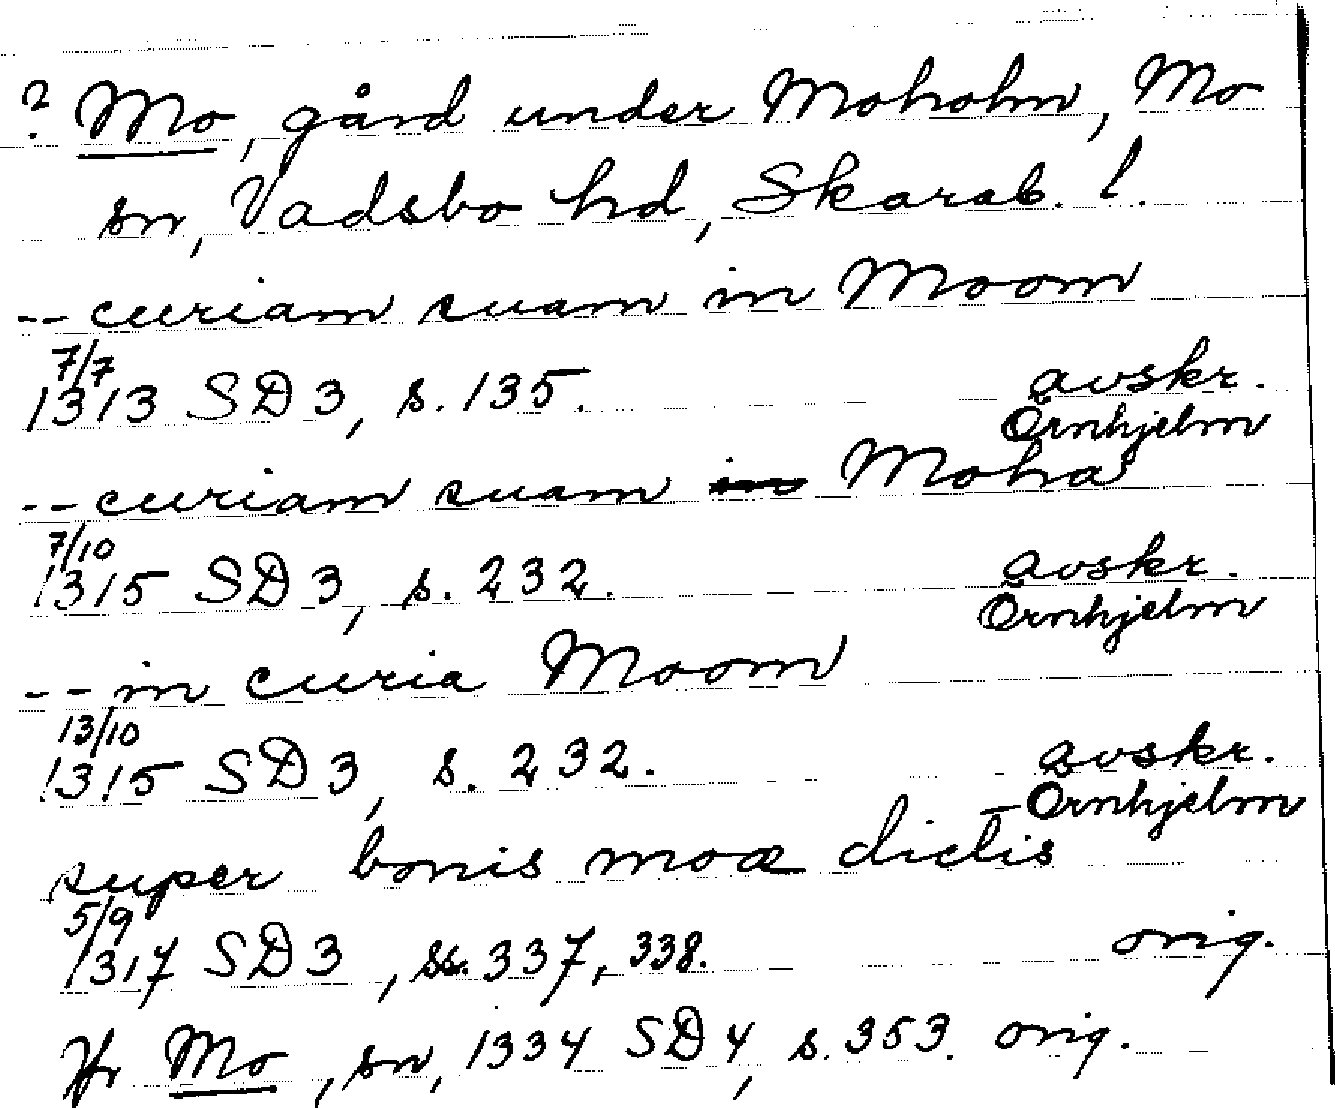 ? Mo, gård under Moholm, Mo
sn, Vadsbo hd, Skarab. l.
-- curiam suam in Moom
7/7 1313 SD 3, s. 135. avskr. Örnhjelm
-- curiam suam in Moha
7/10 1315 SD 3, s. 232. avskr. Örnhjelm
-- in curia Moom
13/10 1315 SD 3, s. 232. avskr. Örnhjelm
super bonis moæ dictis
5/9 1317 SD 3, ss. 337, 338. orig.
Jfr Mo, sn, 1334 SD 4, s. 353. orig.